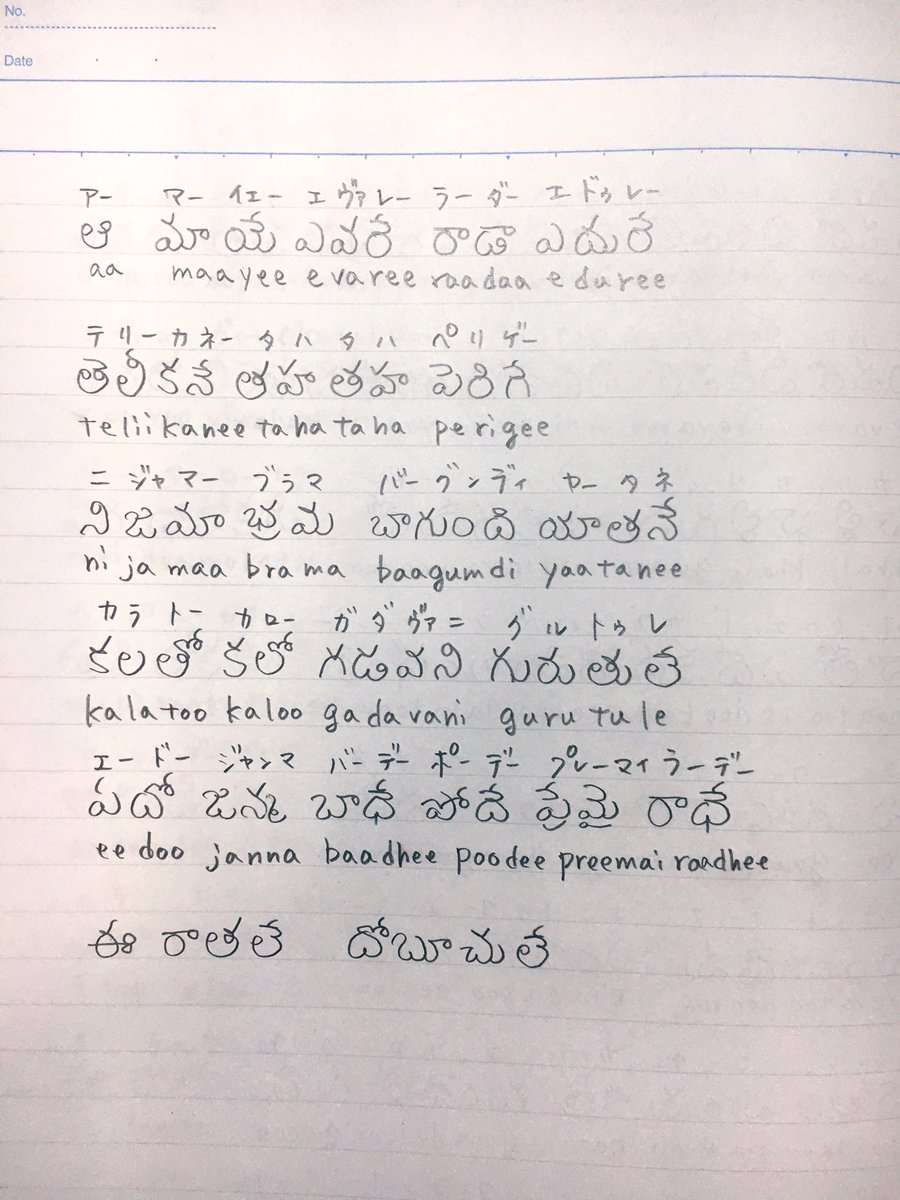 No.
Date
アー マー イェー エヴァレー ラーダー エドゥレー
ఆ మాయే ఎవరే రాడా ఎదురే
aa maayee evaree raadaa eduree
テリーカネー タハタハ ペリゲー
తెలీకనే తహతహ పెరిగే
teliikanee tahataha perigee
ニジャマー ブラマ バーグンディ ヤータネ
నిజమా భ్రమ బాగుంది యాతనే
nijamaa brama baagumdi yaatanee
カラトー カロー ガダヴァニ グルトゥレ
కలతో కలో గడవని గురుతులే
kalatoo kaloo gadavani gurutule
エードー ジャンマ バーデー ポーデー プレーマイラーデー
ఏదో జన్మ బాధే పోదే ప్రేమై రాధే
eedoo janna baadhee poodee preemai raadhee
ఈ రాతలే దోబూచులే